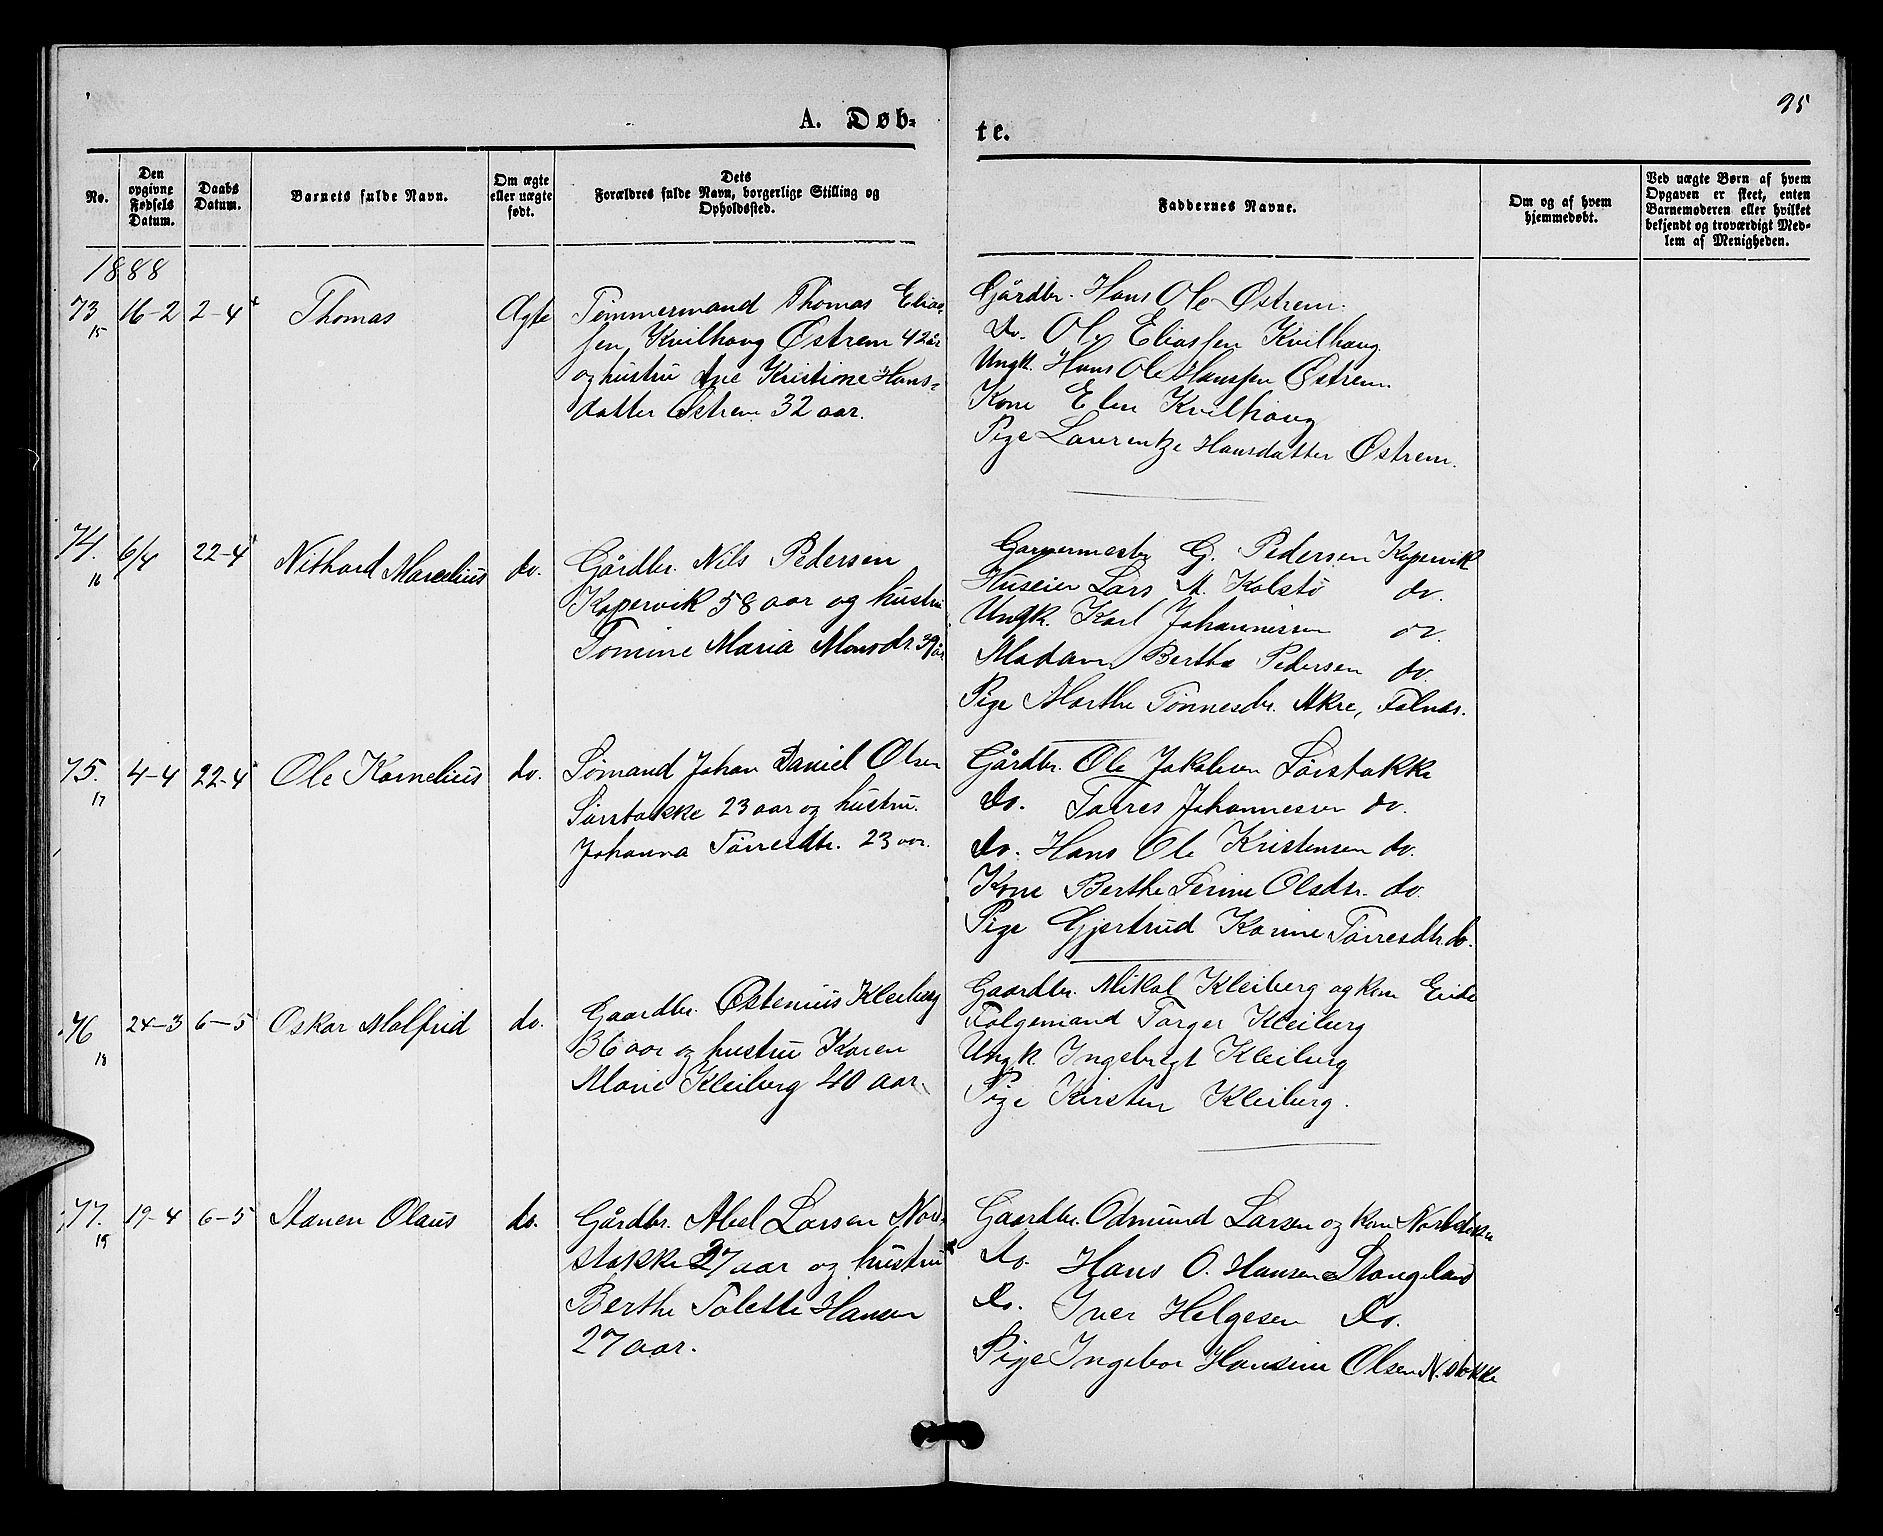 95
A. Døb-
te.
No.
Den opgivne Fødsels Datum.
Daabs Datum.
Barnets fulde Navn.
Om ægte eller uægte født.
Dets Forældres fulde Navn, borgerlige Stilling og Opholdssted.
Faddernes Navne.
Om og af hvem hjemmedøbt.
Ved uægte Børn af hvem Opgaven er skeet, enten Barnemoderen eller hvilket bekjendt og troværdigt Medlem af Menigheden.
1888
73 15 16-2 2-4 Thomas Ægte
Tømmermand Thomas Elias-
sen, Kvilhaug Østrem 42 år
og hustru Ane Kristine Hans-
datter Østrem 32 aar.
Gårdbr. Hans Ole Østrem.
Do. Ole Eliassen Kvilhaug.
Ungk. Hans Ole Hanssen Østrem.
Kone Elen Kvilhaug
Pige Laurentze Hansdatter Østrem.
74. 16 6/4 22-4 Nithard Marcelius do.
Gårdbr. Nils Pedersen
Kopervik 58 aar og hustru
Tomine Maria Monsdr. 39 år
Garvermester G. Pedersen Kopervik
Huseier Lars A. Kolstø do.
Ungk. Karl Johannessen do.
Madam Bertha Pedersen do.
Pige Marthe Tønnesdr. Akre, Falnæs.
75. 17 4-4 22-4 Ole Kornelius do.
Sømand Johan Daniel Olsen
Sørstokke 23 aar og hustru
Johanna Tørresdtr. 23 aar.
Gårdbr. Ole Jakobsen Sørstokke
Do. Tørres Johannessen do.
Do. Hans Ole Kristensen do.
Kone Berthe Serine Olsdtr. do.
Pige Gjertrud Karine Tørresdtr. do.
76 18 24-3 6-5 Oskar Malfrid do.
Gaardbr. Østenius Kleiberg
36 aar og hustru Karen
Marie Kleiberg 40 aar
Gaardbr. Mikal Kleiberg og kone
Følgemand Torger Kleiberg
Ungk. Ingebregt Kleiberg
Pige Kirsten Kleiberg.
77. 19 19-4 6-5 Stanen Olaus do.
Gårdbr. Abel Larsen Nord-
stokke 27 aar og hustru
Berthe Tolette Hansen
27 aar.
Gaardbr. Odmund Larsen og kone Nordstokke
Do. Hans O. Hansen Stangeland
Do. Iver Helgesen Do.
Pige Ingebor Hansine Olsen N. stokke